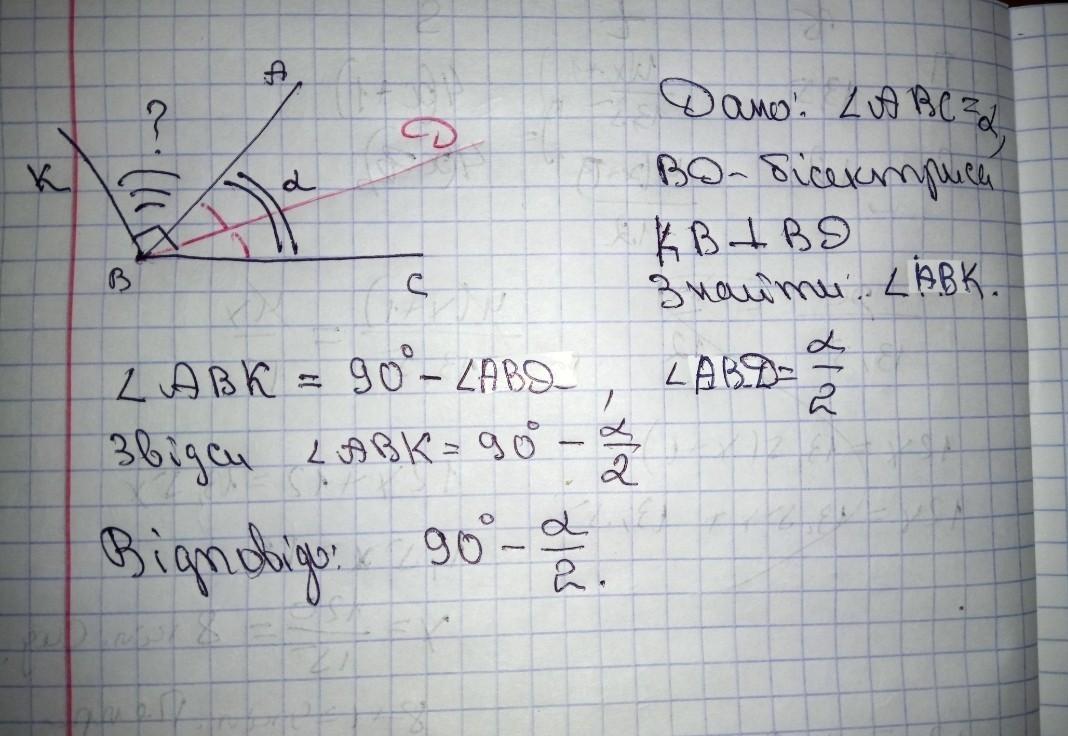 A
?
D
K
α
B
C
Дано: ∠ABC=α,
BD- бісектриса
KB⊥BD
Знайти: ∠ABK.
∠ABK = 90° - ∠ABD, ∠ABD= α/2
Звідси ∠ABK = 90° - α/2
Відповідь: 90° - α/2.